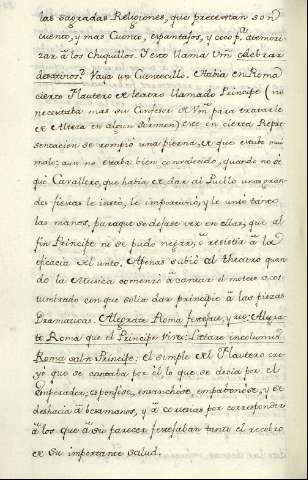 las sagradas Religiones, que presentan son
cuento, y mas Cuento, espantajos, y coco pa. atemori-
zar à los Chiquillos. Y esto llama Vm. celebrar
desatinos? Vaya un Cuentecillo. Habia en Roma
cierto Flautero de teatro llamado Principe (no
necesitaba mas su Confesor de Vm. para tratarle
de Alteza en algun Sermon) este en cierta Repre-
sentacion se rompiò una pierna, de que estubo mui
malo; aun no estaba bien convalecido, quando no sè
què Cavallero, que habia de dar al Pueblo unas gran-
des fiestas le instò, le importunò, y le untò tanto
las manos, para que se dejase ver en ellas, que al
fin Principe no se pudo negar, ò resistir à la
eficacia del unto. Apenas subiò al theatro quan-
do la Musica comenzò à cantar el motete acos-
tumbrado con que solia dar principio à las piezas
Dramaticas. Alegrate Roma
que el Principe vive: Lætare incolumis
Roma salvo Principe: el simple del Flautero cre-
yò que se cantaba por èl lo que se decia por el
Emperador; esponjòse, ensanchòse, empabonòse, y se
deshacia à besamanos, y à cortesias por corresponder
à los que à su parecer festejaban tanto el recobro
de su importante salud.